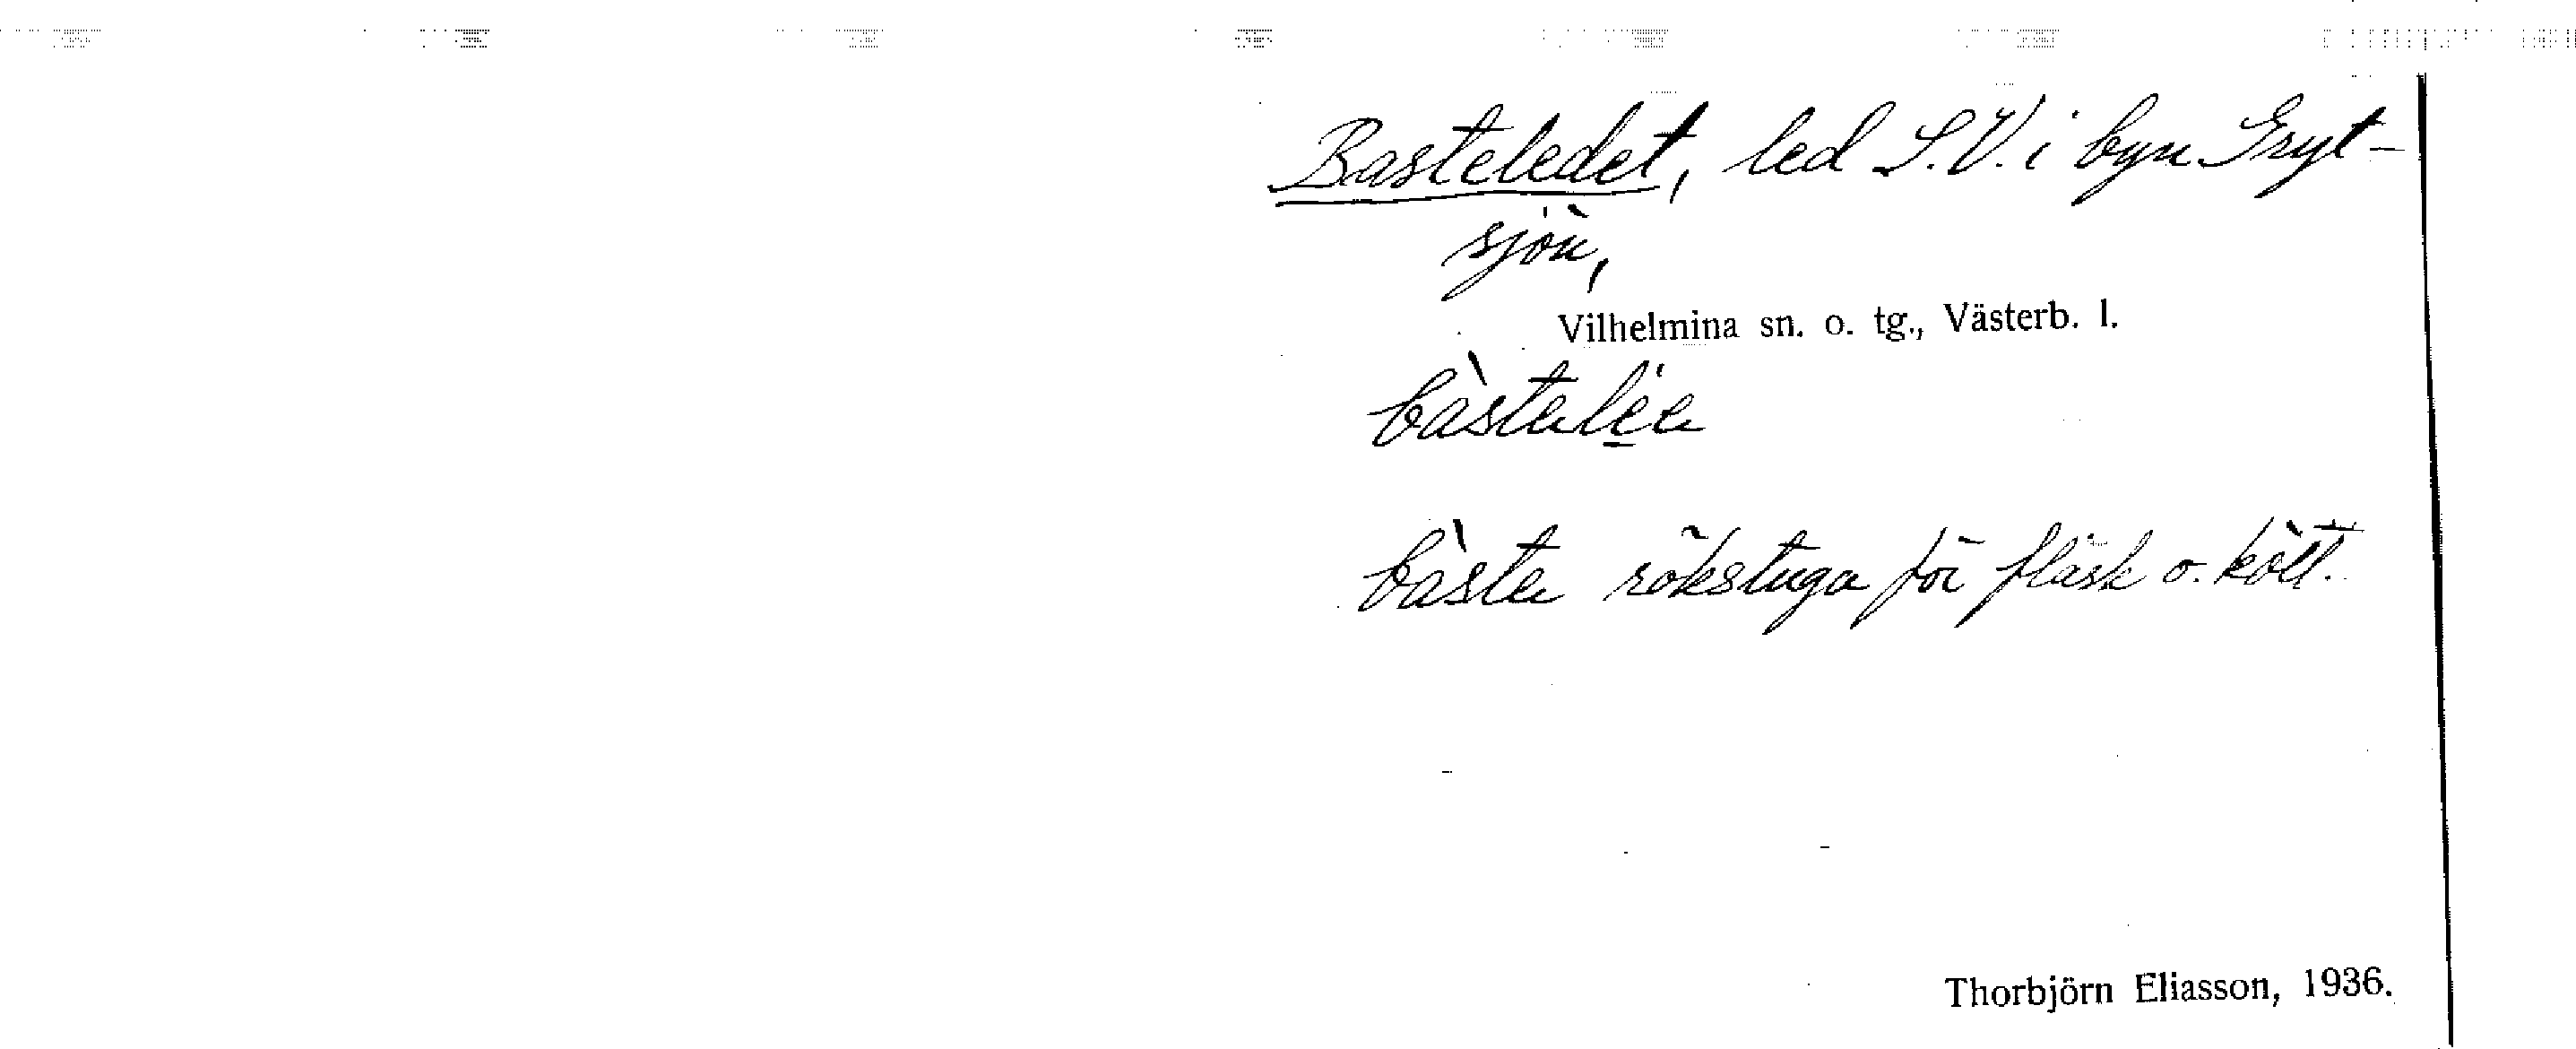 Basteledet, led S.V. i byn Gryt-
sjön,
Vilhelmina sn. o. tg., Västerb. l.
bàstalèe
bàsta rökstuga för fläsk o. kött.
Thorbjörn Eliasson, 1936.